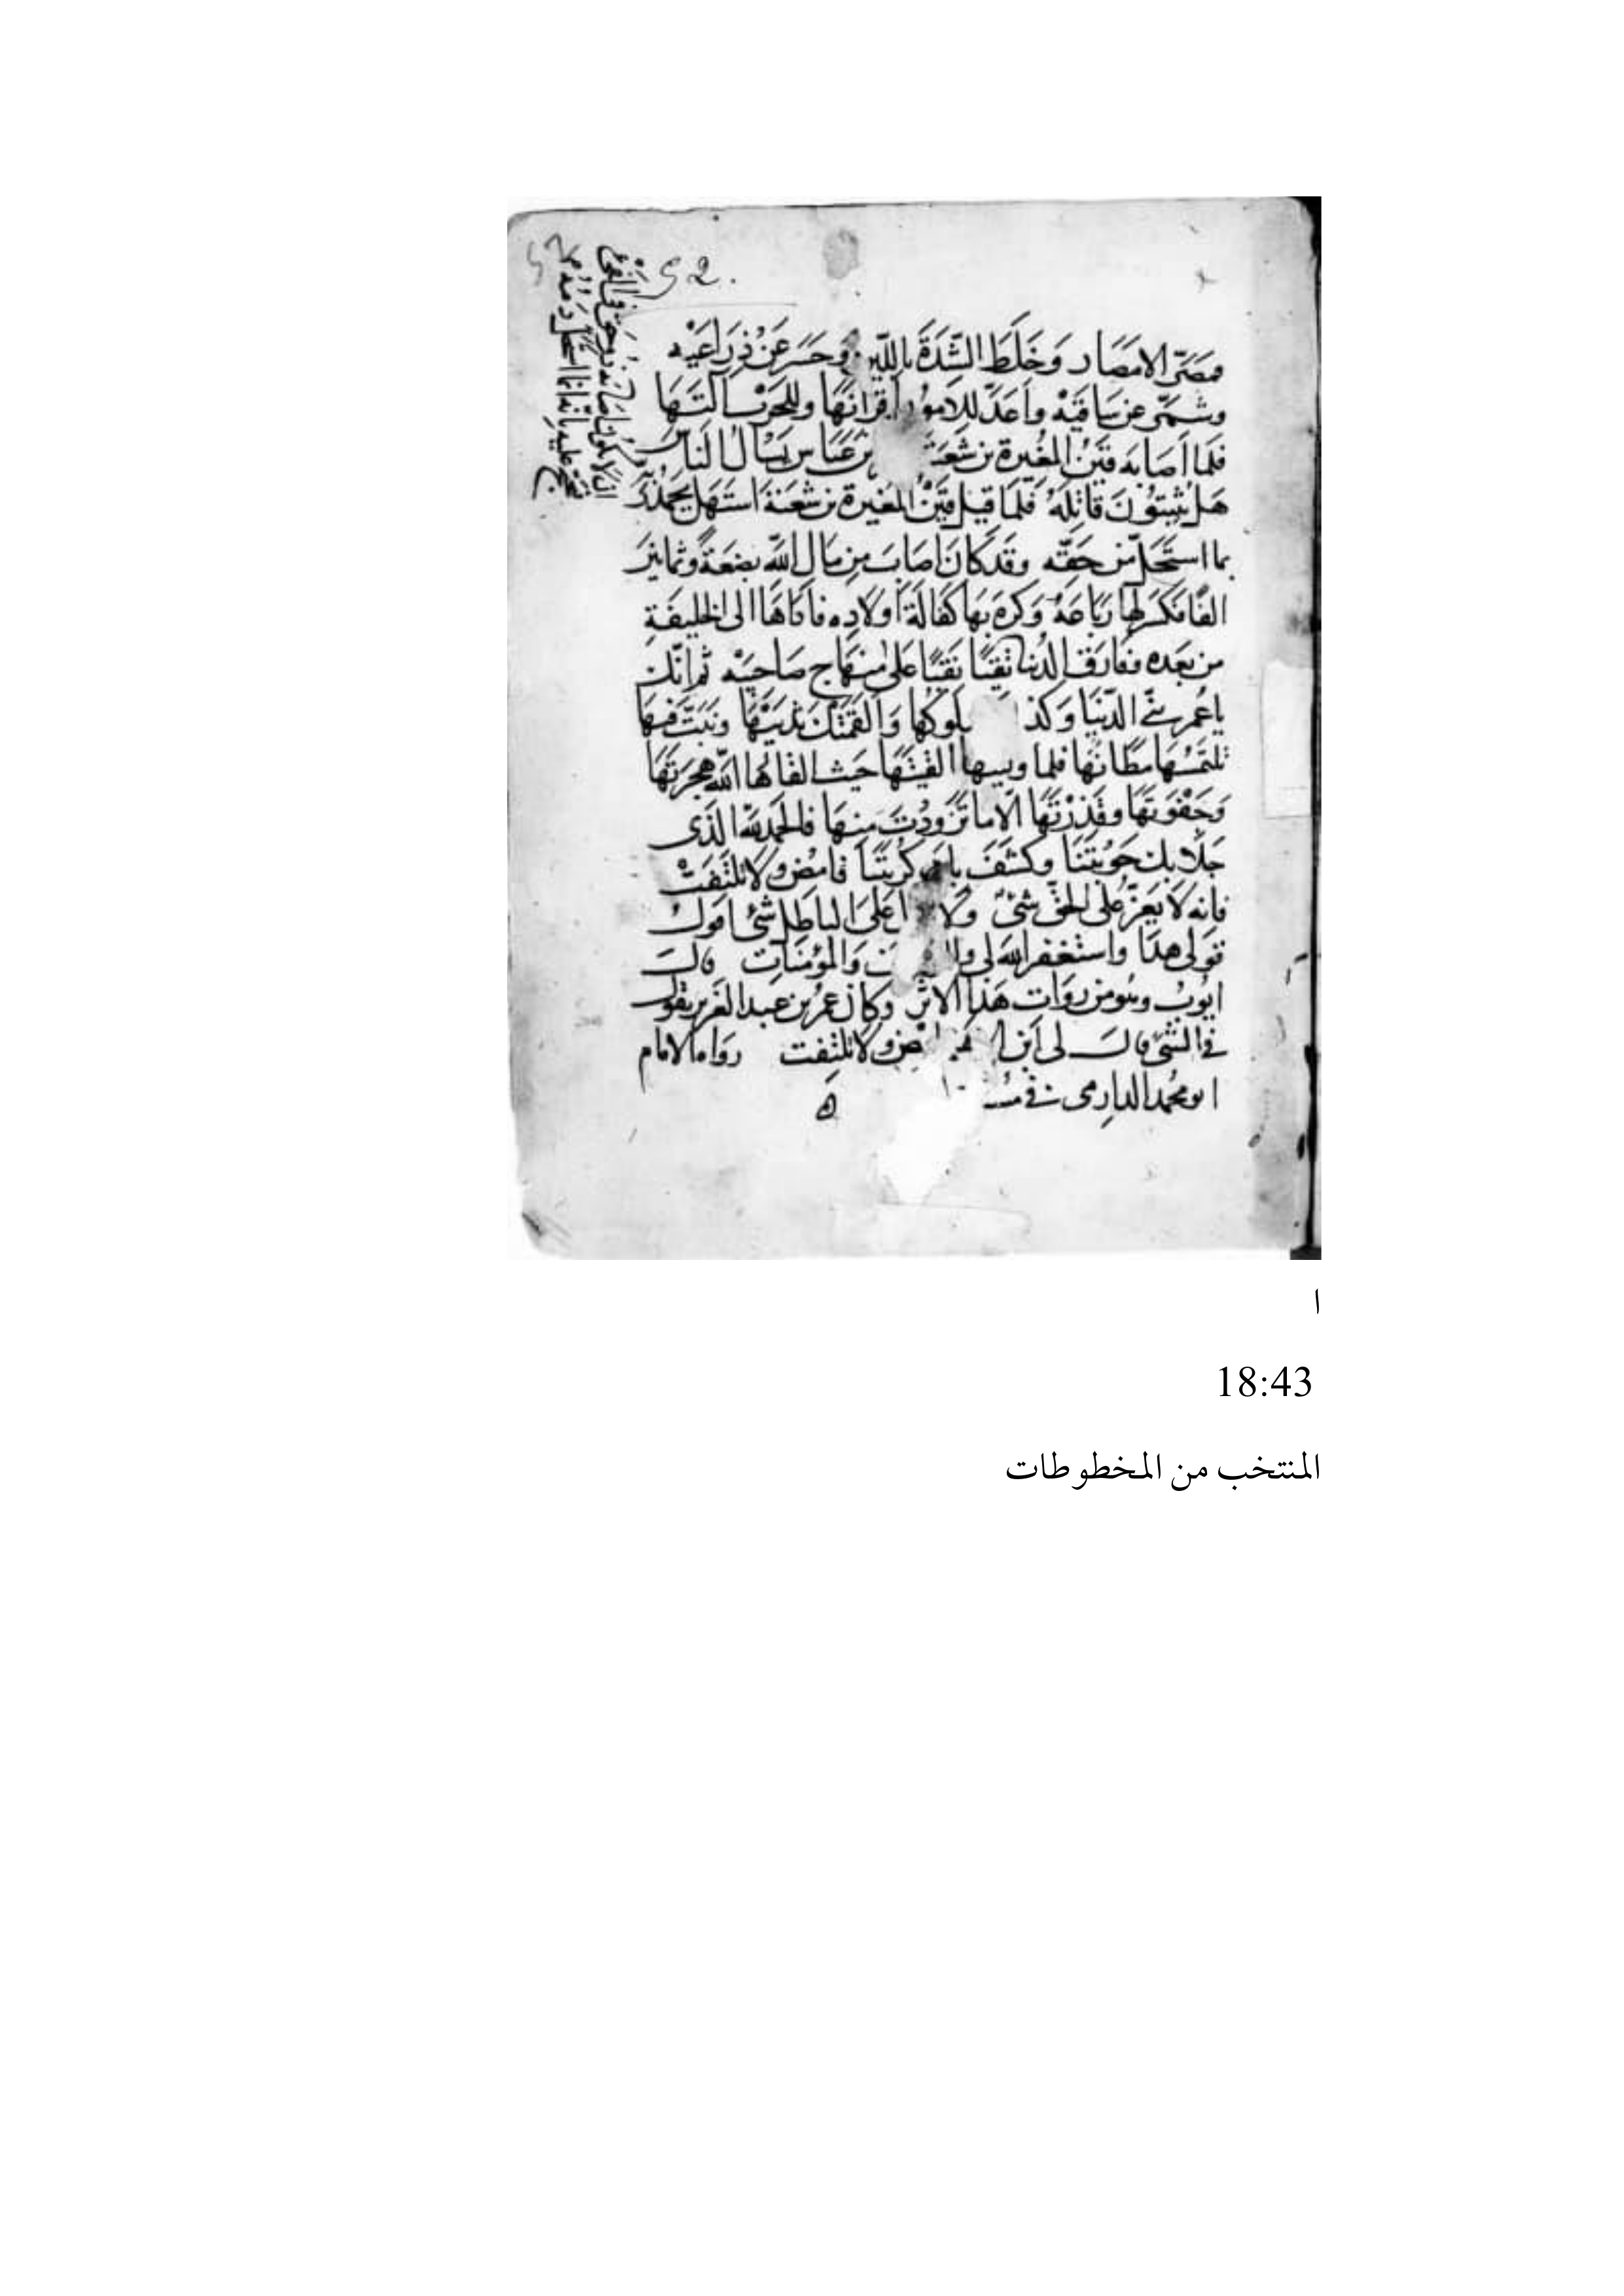 52.
فمصّر الامصار وَخَلَطَ الشّدَةَ باللّين وَحَسَرَ عَنْ ذِرَاعَيْه
وشمّر عن سَاقَيْه وأعَدَّ للامور أقرانهَا وللحَرْب آلتهَا
فلما اصَابَه قَيْنُ المغيرة بن شعبَة ابن عَبَاس يَسْأل النَاسَ
هَل يثبتُونَ قاتِلَهُ فلمّا قيل قَيْنُ المغيرة بن شعبَة استَهَل يحمدُ رَ
بما استَحَلّ من حَقّه وقَد كانَ اصَابَ من مَال اللّه بضعَةً وثمانينَ
الفًا فكسَر لهَا رِبَاعَهُ وَكرهَ بهَا كفالَة اولادِه فادّاهَا الى الخليفَةِ
من بَعده ففارقَ الدُنيا تقيّا نقيّا عَلى منهَاج صَاحِبَيْه ثم انّك
يا عُمر بنيّ الدّنيَا وَلد ملوكُها وَالقمَتْكَ ثديَيْهَا ونبتَّ فيهَا
تلتمسُهَا مظَانّهَا فلما وليتها القيتَهَا حَيث القاهَا اللّه هجرتهَا
وَجَفَوتهَا وقَذرْتَهَا الّا ما تزودْتَ منهَا فالحَمد للّه الّذى
جَلا بك حَوبتَنَا وكشَفَ بك كُربتَنَا فامضِ ولا تلتَفِتْ
فانه لا يَعزّ على الحَقّ شَئٌ ولا عَلى البَاطِل شَئ اقول
قولى هَذا واستغفر اللّه لى وللمؤمنين وَالمؤمنَات قال
ايّوبُ وهُو من روَات هَذا الاثر وكان عُمر بن عَبد العَزيز يقول
في الشئ قال لى ابن الاهتم امضِ ولا تلتفت رواه الامام
ابو محمد الدارمى في مسنده
ا
18:43
المنتخب من المخطوطات